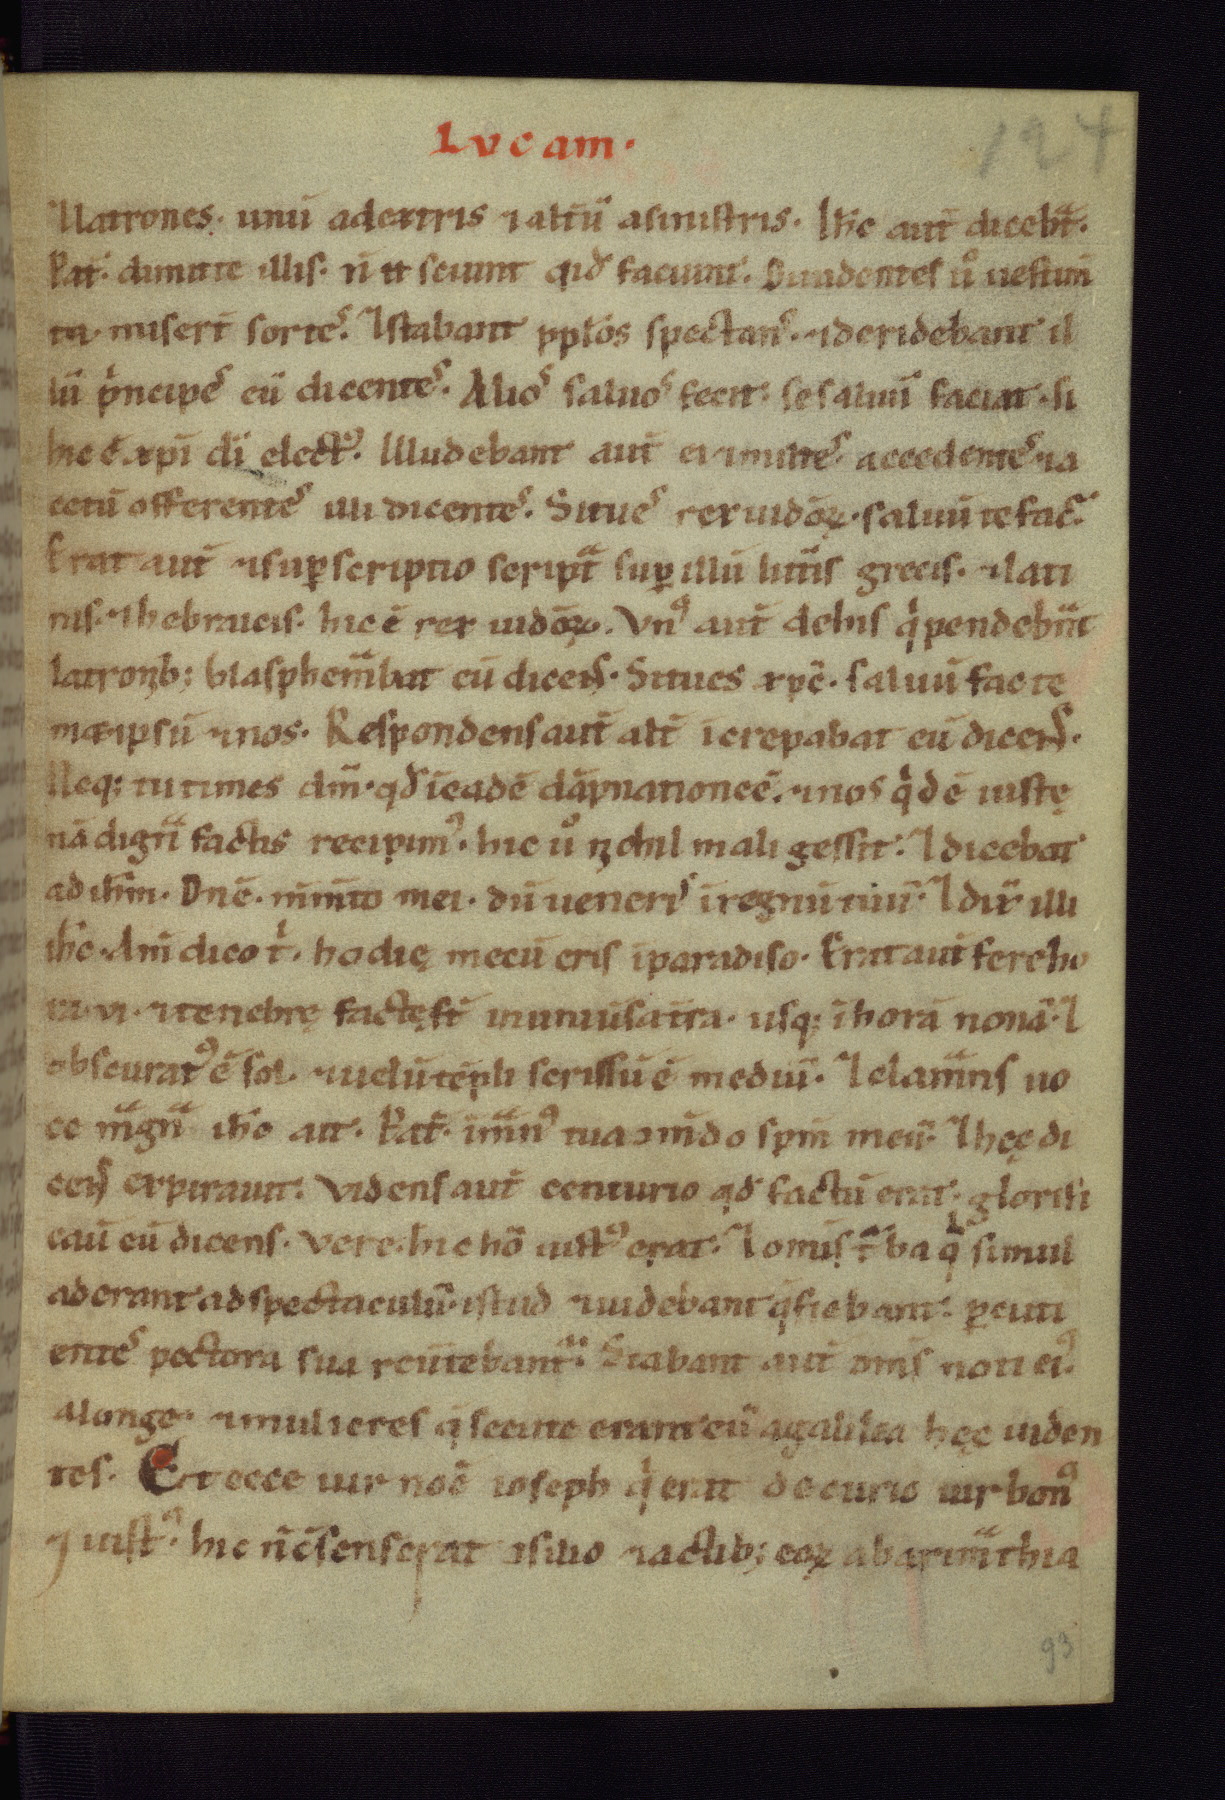 Lvcam.
⁊latrones. unū adextris ⁊alt̄ū asinistris. Ihc̄ aut̄ dicebᵃt.
Pat̄. dimitte illis. n̄ .n. sciunt qid faciunt. Diuidentes ūo uestim̄
ta. miserт̄ sortes. ⁊stabant pplōs spectans. ⁊deridebant il
lū pⁱncipes cū dicentes. Alios saluos fecit: se saluū faciat. si
hic ē xpī dī electꝰ. Illudebant aut̄ ei ⁊milites accedentes ⁊a
cetū offerentes illi dicentes. Si tu es rex iudōꝝ. saluū te fac.
Erat aut̄ ⁊sup̄scriptio scriptᵃ sup̄ illū litt̄is grecis. ⁊lati
nis. ⁊hebraicis. hic ē rex iudōꝝ. Vnꝰ aut̄ dehis qⁱ pendebᵃnt
latronib; blasphemᵃbat eū dicens. Si tu es xpc̄. saluū fac te
met ipsū ⁊nos. Respondens aut̄ alt̄ īcrepabat eū dicens.
Neq; tu times dm̄. qd īeadē dāpnatione ē. ⁊nos qⁱdē iustę
nā dignᵃ factis recipimꝰ. hic ūo nichil mali gessit. ⁊dicebat
ad ihm̄. Dnē. mm̄to mei. dū ueneris ī regnū tuū. ⁊dix̄ illi
ihc̄. Am̄ dico tⁱ. hodię mecū eris īparadiso. Erat aut̄ fere ho
ra. vi. ⁊tenebrę factę st̄ ī uniuūsa t̄ra. usq; ī horā nonā. ⁊
obscuratꝰ ē sol. ⁊uelū tēpli scissū ē mediū. ⁊clamᵃns uo
ce mᵃgnᵃ ihc̄ ait. Pat̄. ī mᵃnꝰ tuas ꝯm̄do spm̄ meū. ⁊hęc di
cens expirauit. Videns aut̄ centurio qd factū erat. glorifi
cauit̄ dm̄ dicens. Vere. hic hō iustꝰ erat. ⁊om̄is tᵃba qᵉ simul
aderant ad spectaculū istud ⁊uidebant q̄ fiebant. p̄cuti
entes pectora sua reūtebantᵃ. Stabant aut̄ om̄s noti eiꝰ
alonge. ⁊mulieres q̄ secute erant eū agalilea hęc uiden
tes. Et ecce uir noē ioseph qⁱ erat decurio uir bonꝰ
⁊ iustꝰ. hic n̄ ꝯsenserat ꝯsilio ⁊actib; eoꝝ abarimᵃthia
124
93